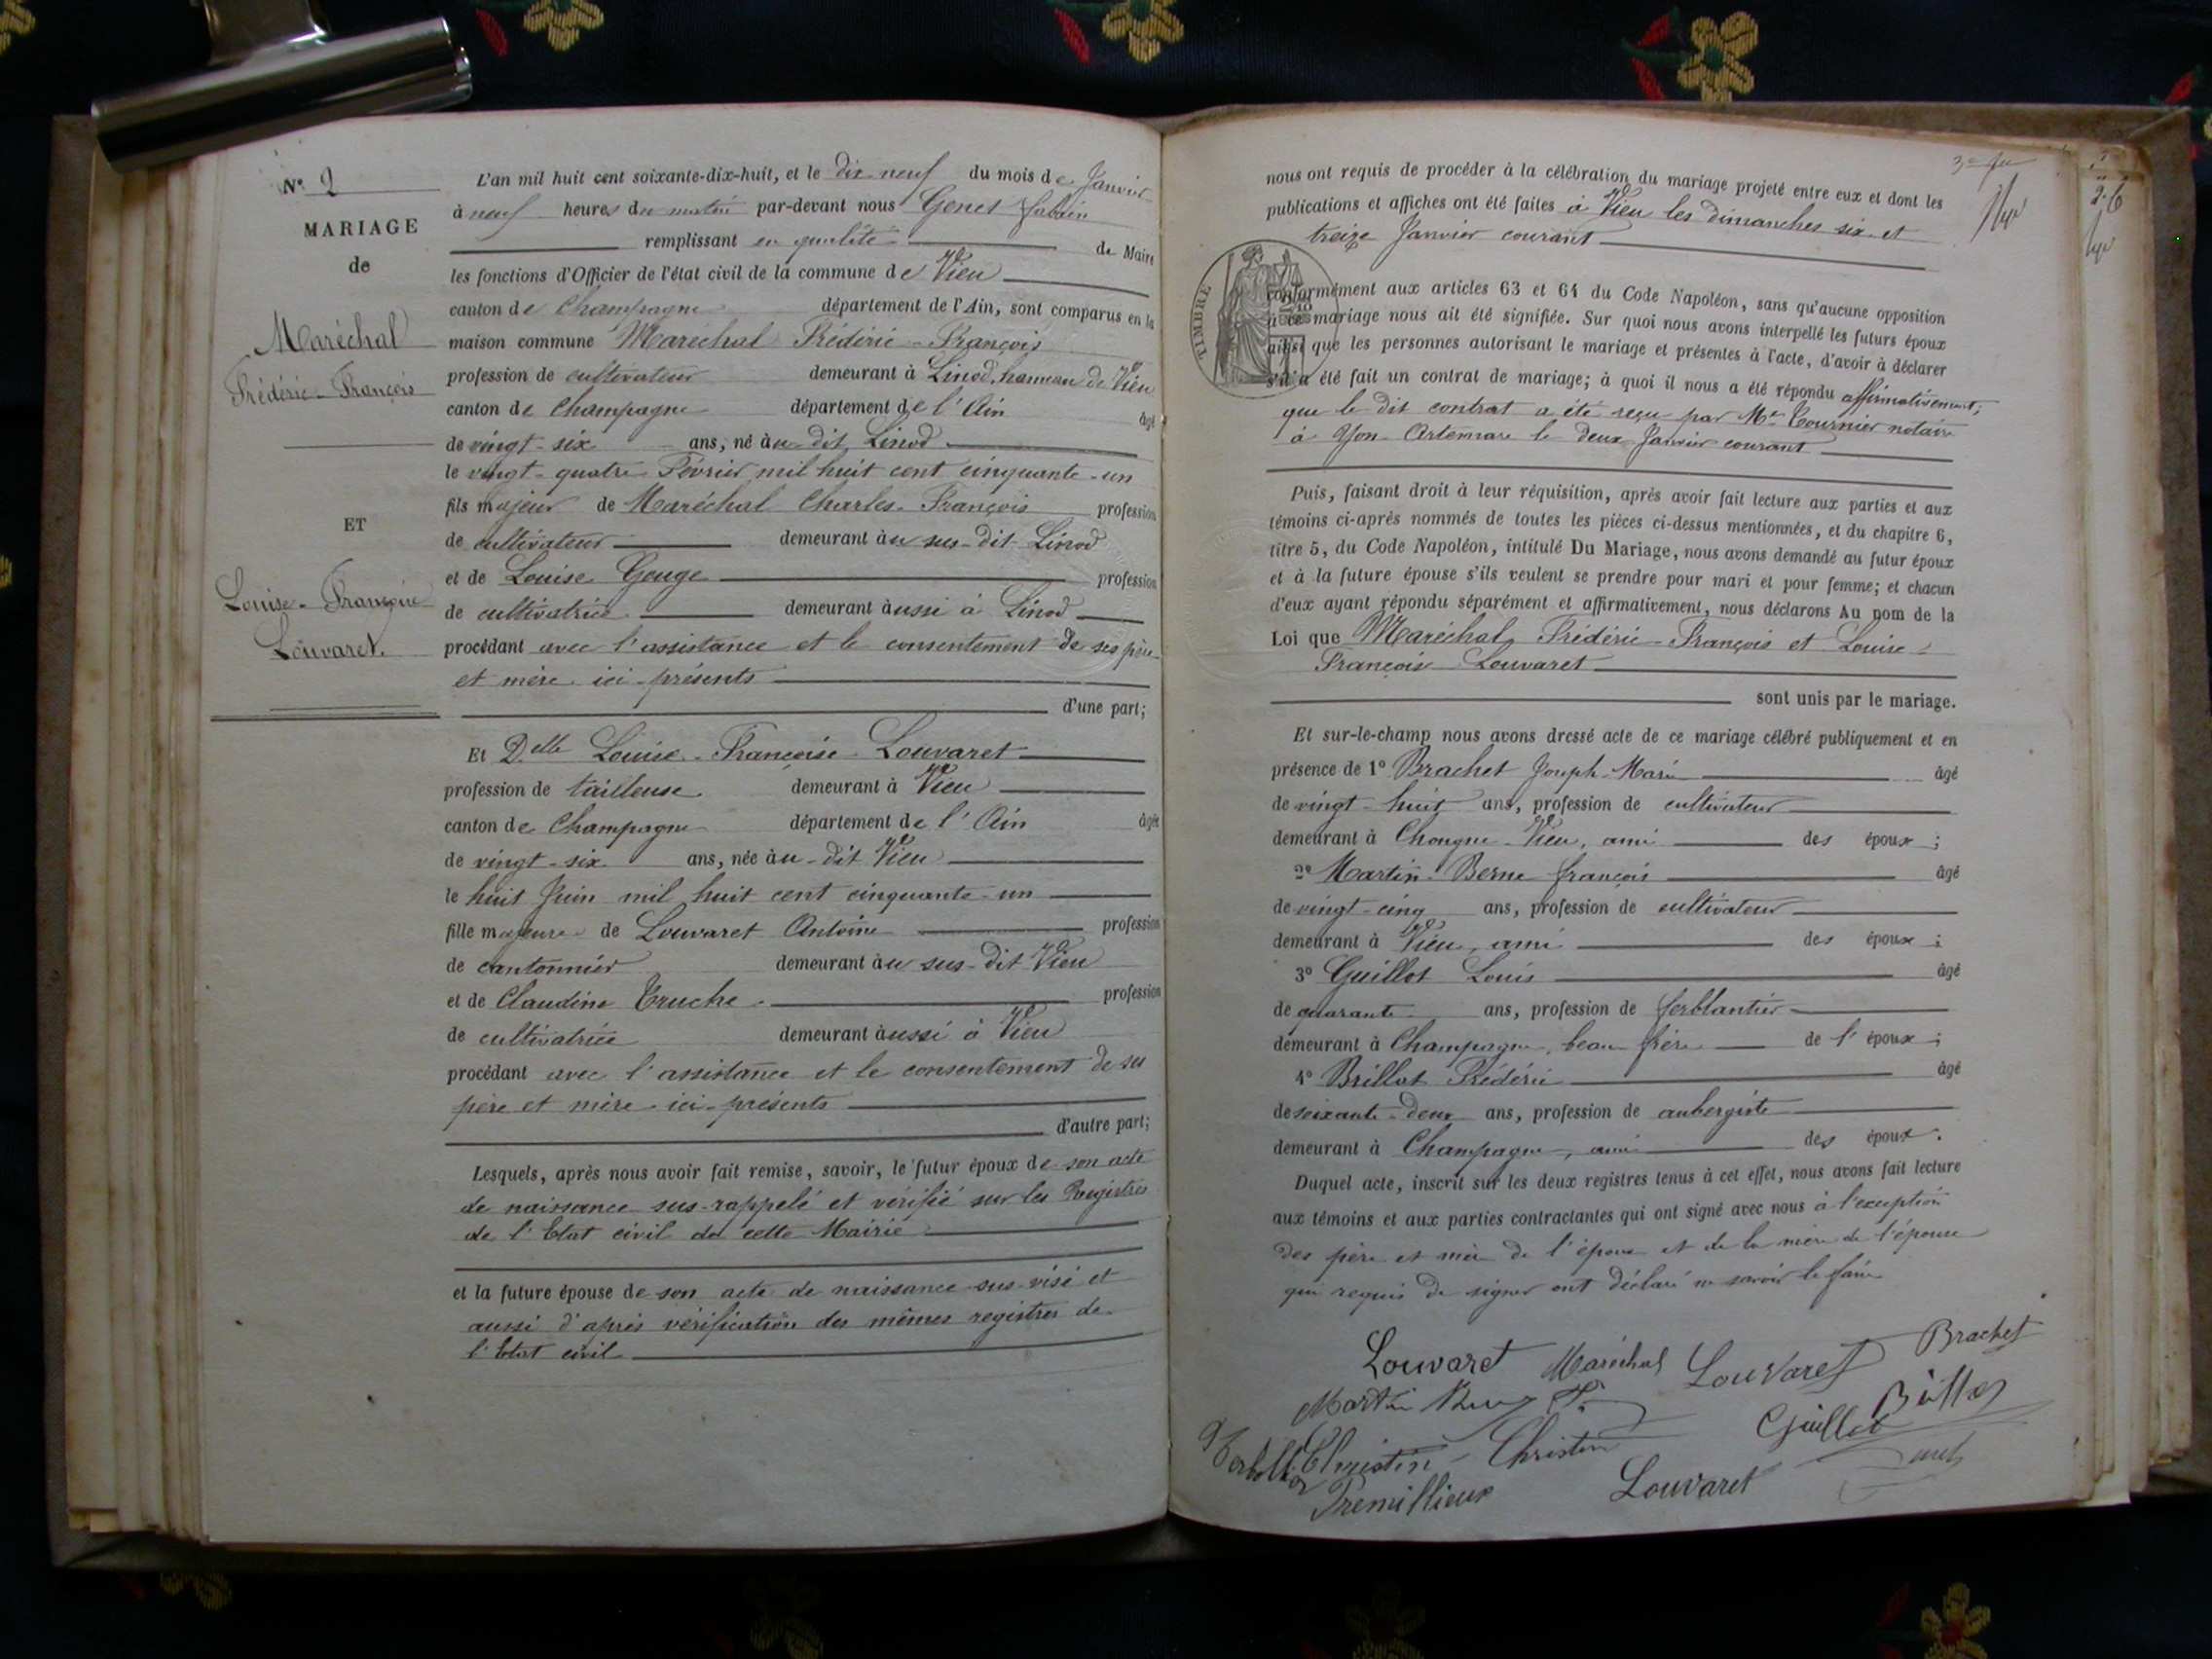 N° 2
MARIAGE
de
Maréchal
Frédéric-François
ET
Louise-Françoise
Louvaret.
L'an mil huit cent soixante-dix-huit, et le dix neuf du mois de Janvier
à neuf heures du matin par-devant nous Genet
remplissant en qualité de Maire
les fonctions d'Officier de l'état civil de la commune de Vieu
canton de Champagne département de l'Ain, sont comparus en la
maison commune Maréchal Frédéric-François
profession de cultivateur demeurant à Linod, hameau de Vieu
canton de Champagne département de l'Ain âgé
de vingt-six ans, né au dit Linod
le vingt-quatre Février mil huit cent cinquante-un
fils majeur de Maréchal Charles-François profession
de cultivateur demeurant au sus-dit Linod
et de Louise Genge profession
de cultivatrice demeurant aussi à Linod
procédant avec l'assistance et le consentement de ses père
et mère ici présents
d'une part;
Et Delle Louise-Françoise Louvaret
profession de tailleuse demeurant à Vieu
canton de Champagne département de l'Ain âgée
de vingt-six ans, née au-dit Vieu
le huit Juin mil huit cent cinquante-un
fille majeure de Louvaret Antoine profession
de cantonnier demeurant au sus-dit Vieu
et de Claudine Truche profession
de cultivatrice demeurant aussi à Vieu
procédant avec l'assistance et le consentement de ses
père et mère ici présents
d'autre part;
Lesquels, après nous avoir fait remise, savoir, le futur époux de son acte
de naissance sus-rappelé et vérifié sur les Registres
de l'Etat civil de cette Mairie
et la future épouse de son acte de naissance sus-visé et
aussi d'après vérification des mêmes registres de
l'Etat civil
nous ont requis de procéder à la célébration du mariage projeté entre eux et dont les
publications et affiches ont été faites à Vieu les dimanches six et
treize Janvier courant
TIMBRE
conformément aux articles 63 et 64 du Code Napoléon, sans qu'aucune opposition
à ce mariage nous ait été signifiée. Sur quoi nous avons interpellé les futurs époux
ainsi que les personnes autorisant le mariage et présentes à l'acte, d'avoir à déclarer
s'il a été fait un contrat de mariage; à quoi il nous a été répondu affirmativement;
que le dit contrat a été reçu par Me Tournier notaire
à Yon-Artemare le deux Janvier courant
Puis, faisant droit à leur réquisition, après avoir fait lecture aux parties et aux
témoins ci-après nommés de toutes les pièces ci-dessus mentionnées, et du chapitre 6,
titre 5, du Code Napoléon, intitulé Du Mariage, nous avons demandé au futur époux
et à la future épouse s'ils veulent se prendre pour mari et pour femme; et chacun
d'eux ayant répondu séparément et affirmativement, nous déclarons Au nom de la
Loi que Maréchal Frédéric-François et Louise-
Françoise Louvaret
sont unis par le mariage.
Et sur-le-champ nous avons dressé acte de ce mariage célébré publiquement et en
présence de 1° Brachet Joseph-Marie âgé
de vingt-huit ans, profession de cultivateur
demeurant à Chongne-Vieu, ami des époux;
2° Martin-Berne François âgé
de vingt-cinq ans, profession de cultivateur
demeurant à Vieu, ami des époux;
3° Guillot Louis âgé
de quarante ans, profession de ferblantier
demeurant à Champagne, beau frère de l'époux;
4° Brillat Frédéric âgé
de soixante-deux ans, profession de aubergiste
demeurant à Champagne, ami des époux.
Duquel acte, inscrit sur les deux registres tenus à cet effet, nous avons fait lecture
aux témoins et aux parties contractantes qui ont signé avec nous à l'exception
des père et mère de l'époux et de la mère de l'épouse
qui requis de signer ont déclaré ne savoir le faire
Louvaret Maréchal Louvaret Brachet
Martin
Guillot
Christin Christin
Premillieux Louvaret
26